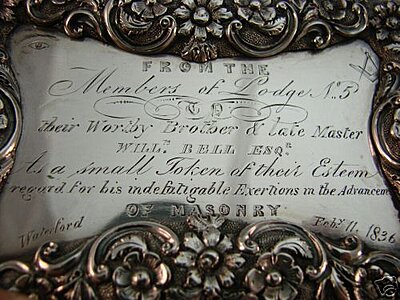 FROM THE
Members of Lodge No. 5
TO
their Worthy Brother & late Master
WILLm. BELL ESQr.
As a small Token of their Esteem
regard for his indefatigable Exertions in the Advancemen
OF MASONRY
Waterford Feby. 11. 1836